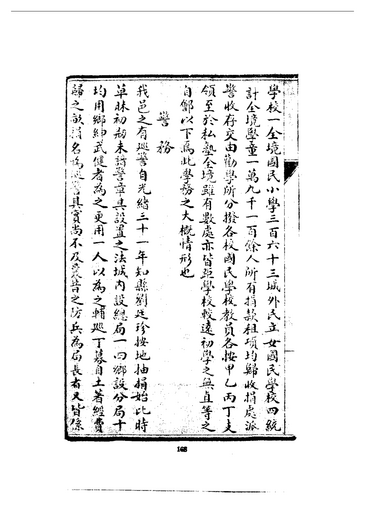 學校一全境國民小學三百六十三城外民立女國民學校四統
計全境學童一萬九千一百餘人所有捐款租項均歸收捐處派
警收存交由勸學所分撥各校國民學校教員各按甲乙丙丁支
領至於私塾全境雖有數處亦皆距學校較遠初學之無直等之
自鄶以下焉此學務之大概情形也
警務
我邑之有巡警自光緒三十一年知縣劉廷珍按地抽捐始此時
草昧初創未諳警章其設置之法城內設總局一四鄉設分局十
均用鄉紳武健者為之更用一人以為之輔巡丁募自土著經費
歸之畝捐名為巡警其實尚不及曩昔之防兵為局長者又皆係
168